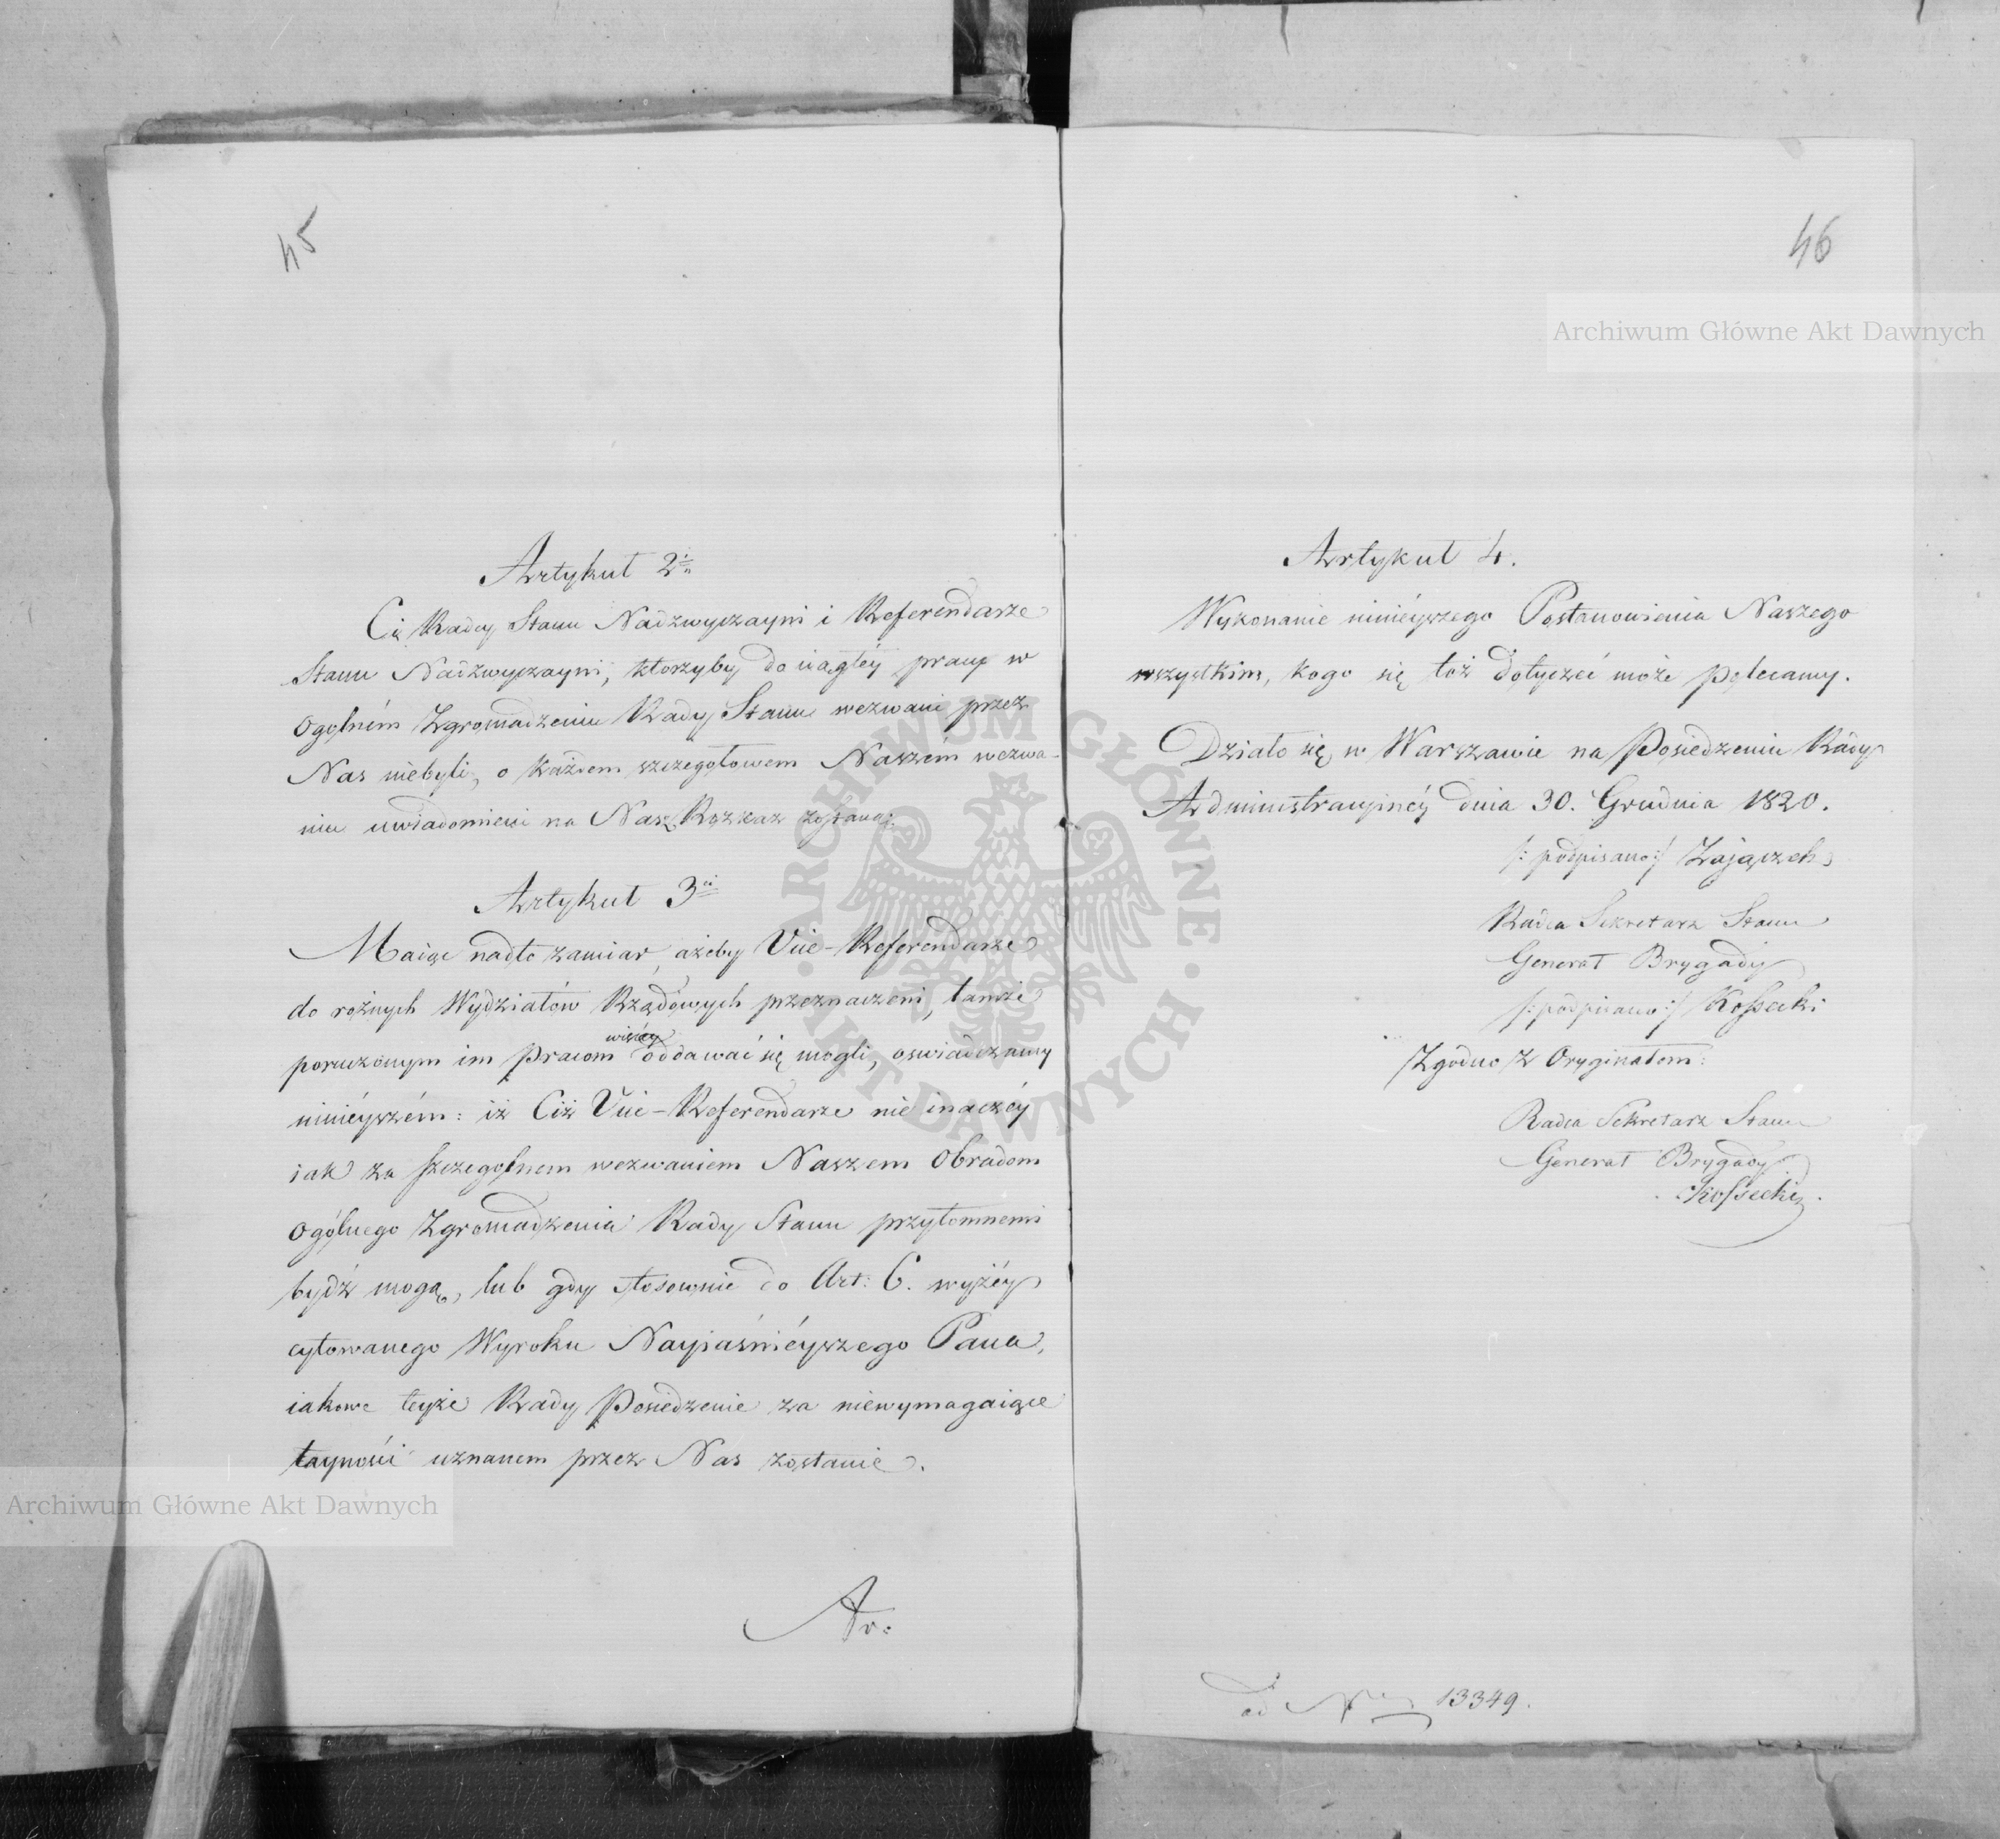 45
Artykuł 2i
Ci Radcy Stanu Nadzwyczayni i Referendarze
Stanu Nadzwyczayni, którzyby do ciągłéy pracy w
Ogolném Zgromadzeniu Rady Stanu wezwani przez
Nas niebyli, o każdem szczegółowem Naszém wezwa-
niu uwiadomieni na Nasz Rozkaz zostaną.
Artykuł 3ci
Maiąc nadto zamiar, ażeby Vice-Referendarze
do rożnych Wydziałów Rządowych przeznaczeni, tamże
więcéy
poruczonym im Pracom oddawać się mogli, oswiadczamy
ninieyszém: iż Ciż Vice-Referendarze nie inaczéy
iak za szczegolnem wezwaniem Naszem Obradom
Ogólnego Zgromadzenia Rady Stanu przytomnemi
bydź mogą, lub gdy stosownie do Art: 6. wyżéy
cytowanego Wyroku Nayiaśniéyszego Pana,
iakowe teyże Rady Posiedzenie za niewymagaiące
tayności uznanem przez Nas zostanie.
Ar:
46
Artykuł 4.
Wykonanie ninieyszego Postanowienia Naszego
wszystkim, kogo się toż dotyczeć może polecamy.
Działo się w Warszawie na Posiedzeniu Rady
Administracyinéy dnia 30. Grudnia 1820.
/: podpisano :/ Zajączek
Radca Sekretarz Stanu
Generał Brygady
/: podpisano :/ Kossecki
Zgodno z Oryginałem:
Radca Sekretarz Stanu
Generał Brygady
Kossecki
ad 13349.
Archiwum Główne Akt Dawnych
Archiwum Główne Akt Dawnych
ARCHIWUM GŁÓWNE
AKT DAWNYCH